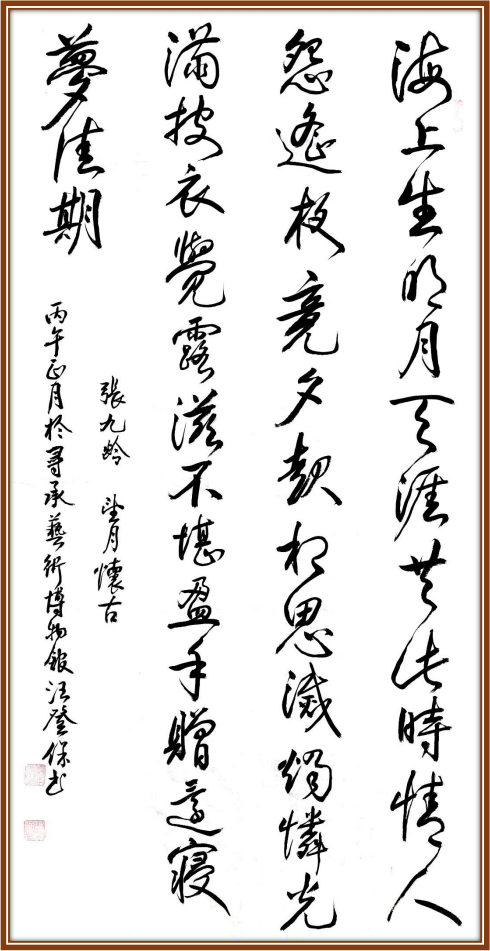 海上生明月天涯共此時情人
怨遙夜竟夕起相思滅燭憐光
滿披衣覺露滋不堪盈手贈還寢
夢佳期
張九齡 望月懷古
丙午正月於尋承藝術博物館登保书